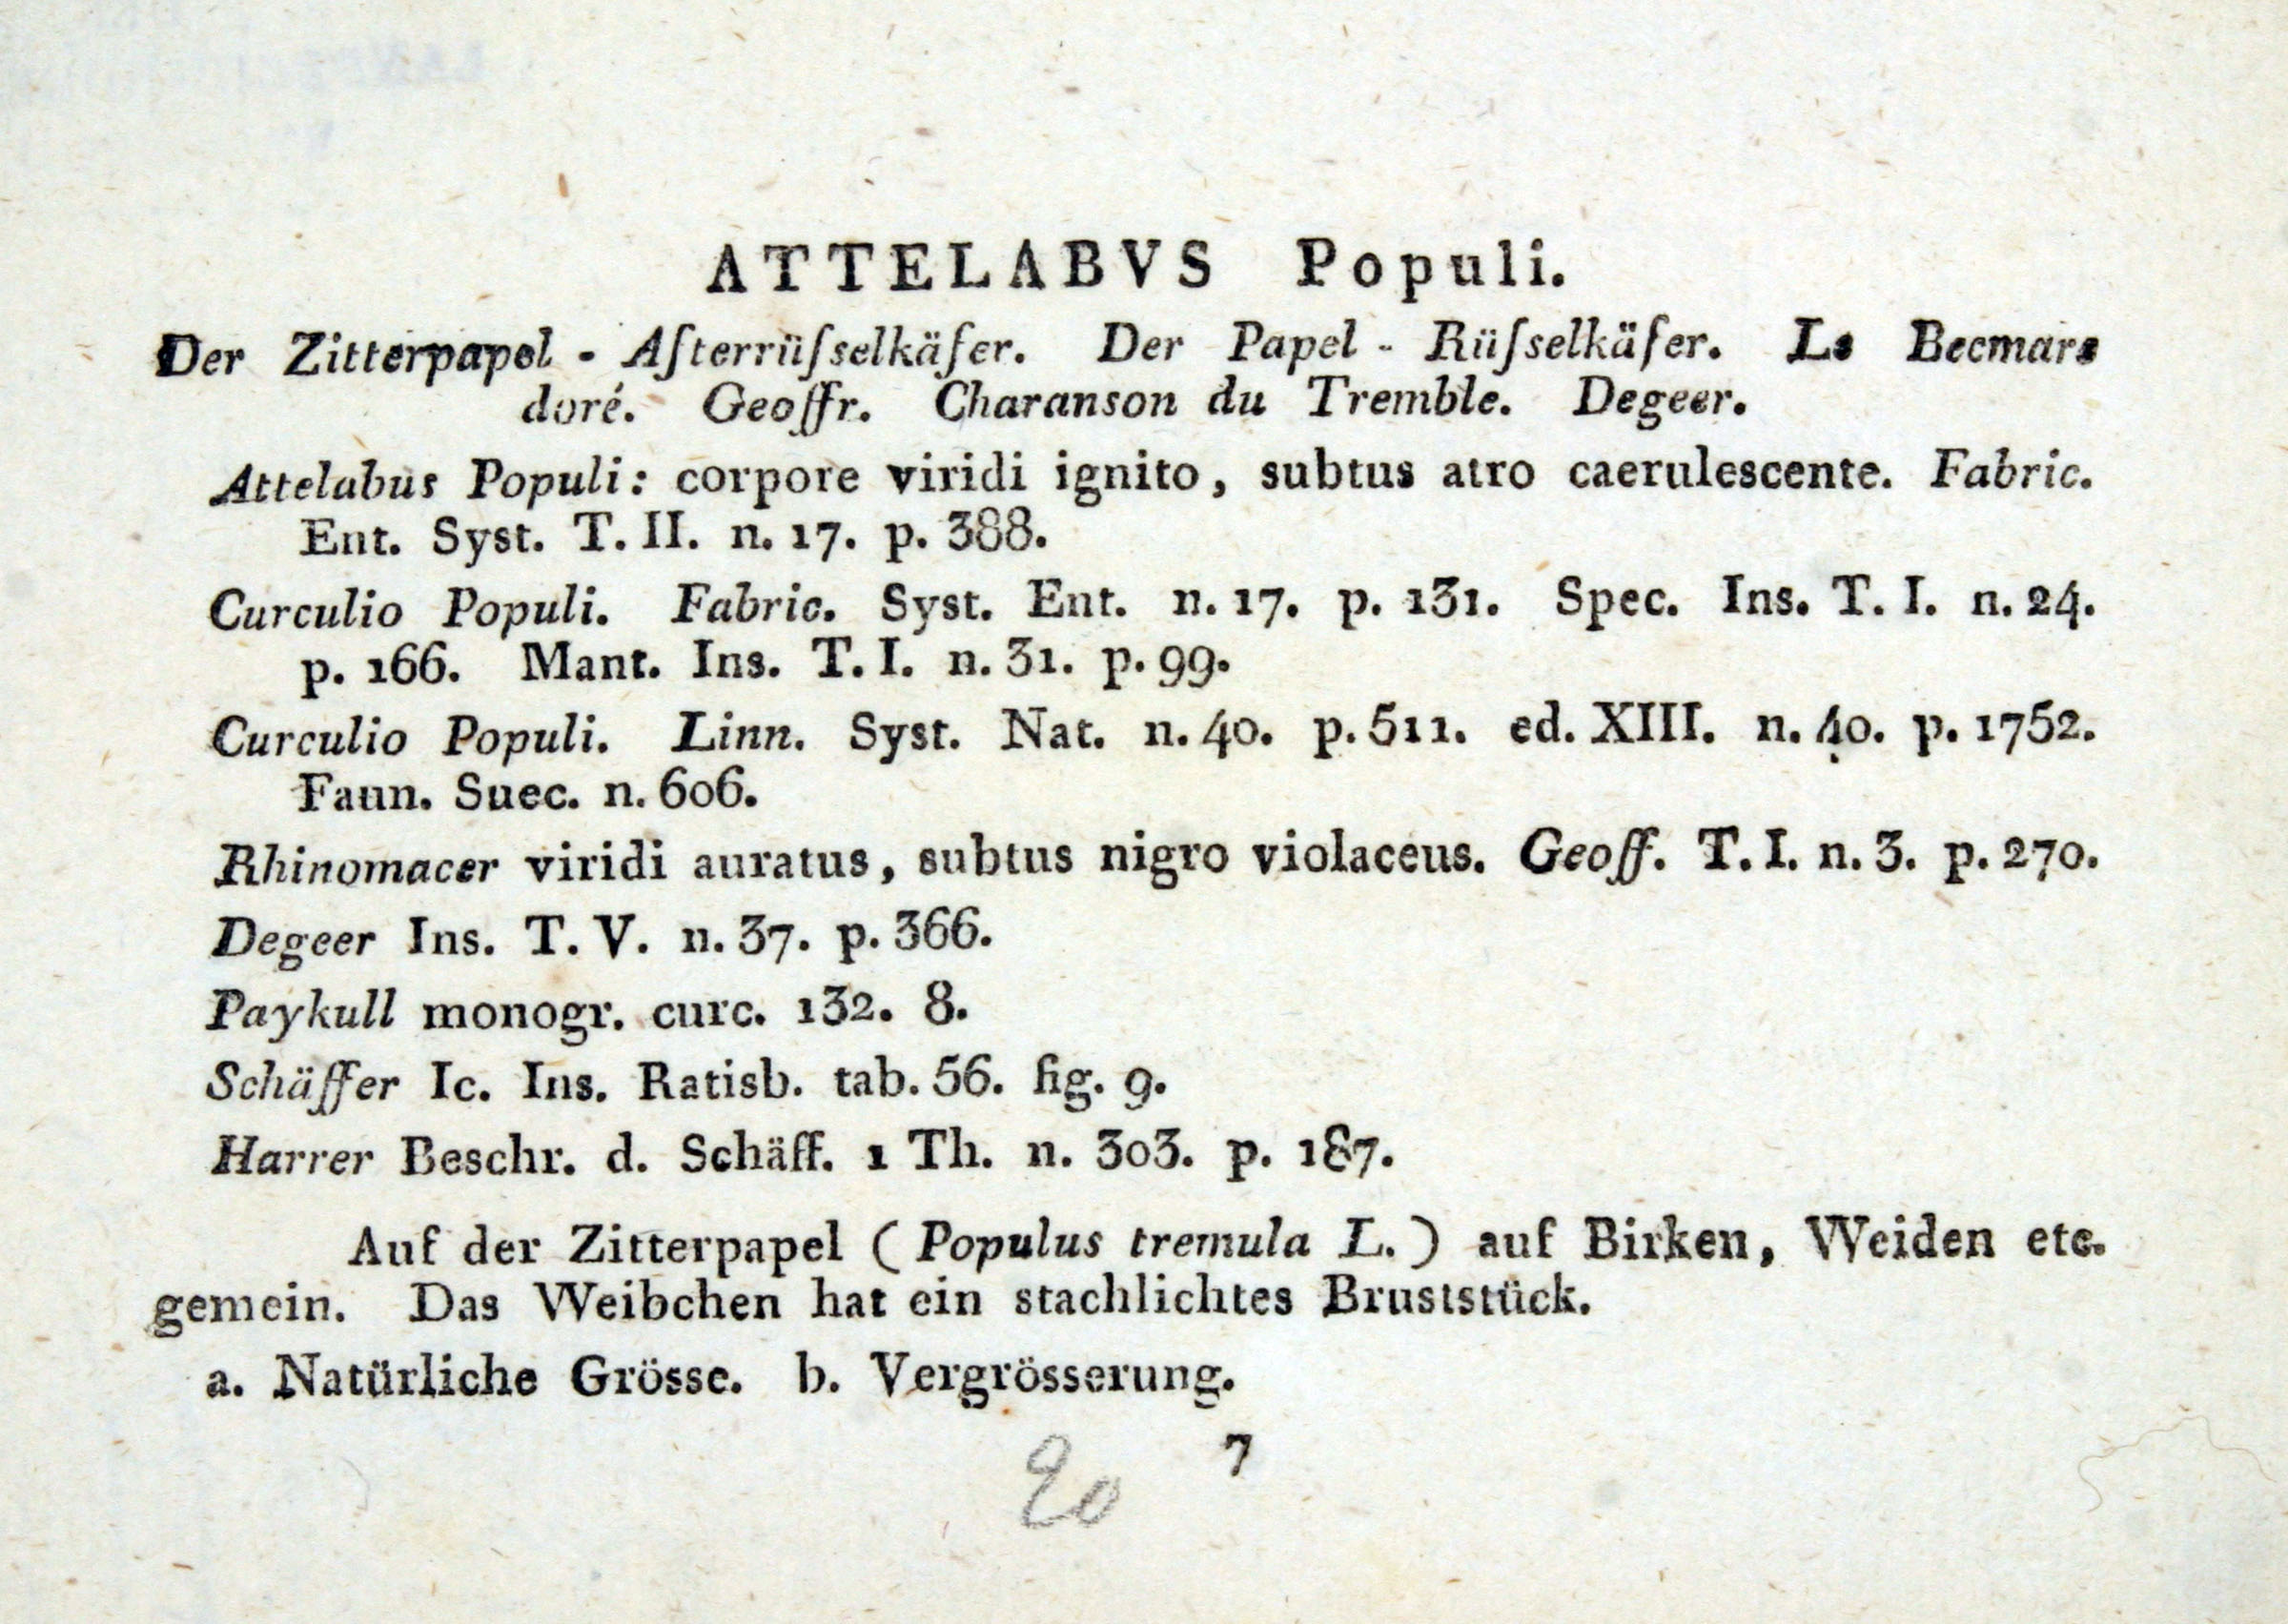 ATTELABVS Populi.
Der Zitterpapel - Afterrüſselkäfer. Der Papel - Rüſselkäfer. Le Becmare
doré. Geoffr. Charanson du Tremble. Degeer.
Attelabus Populi: corpore viridi ignito, subtus atro caerulescente. Fabric.
Ent. Syst. T. II. n. 17. p. 388.
Curculio Populi. Fabric. Syst. Ent. n. 17. p. 131. Spec. Ins. T. I. n. 24.
p. 166. Mant. Ins. T. I. n. 31. p. 99.
Curculio Populi. Linn. Syst. Nat. n. 40. p. 511. ed. XIII. n. 40. p. 1752.
Faun. Suec. n. 606.
Rhinomacer viridi auratus, subtus nigro violaceus. Geoff. T. I. n. 3. p. 270.
Degeer Ins. T. V. n. 37. p. 366.
Paykull monogr. curc. 132. 8.
Schäffer Ic. Ins. Ratisb. tab. 56. fig. 9.
Harrer Beschr. d. Schäff. 1 Th. n. 303. p. 187.
Auf der Zitterpapel (Populus tremula L.) auf Birken, Weiden etc.
gemein. Das Weibchen hat ein stachlichtes Bruststück.
a. Natürliche Grösse. b. Vergrösserung.
7
20